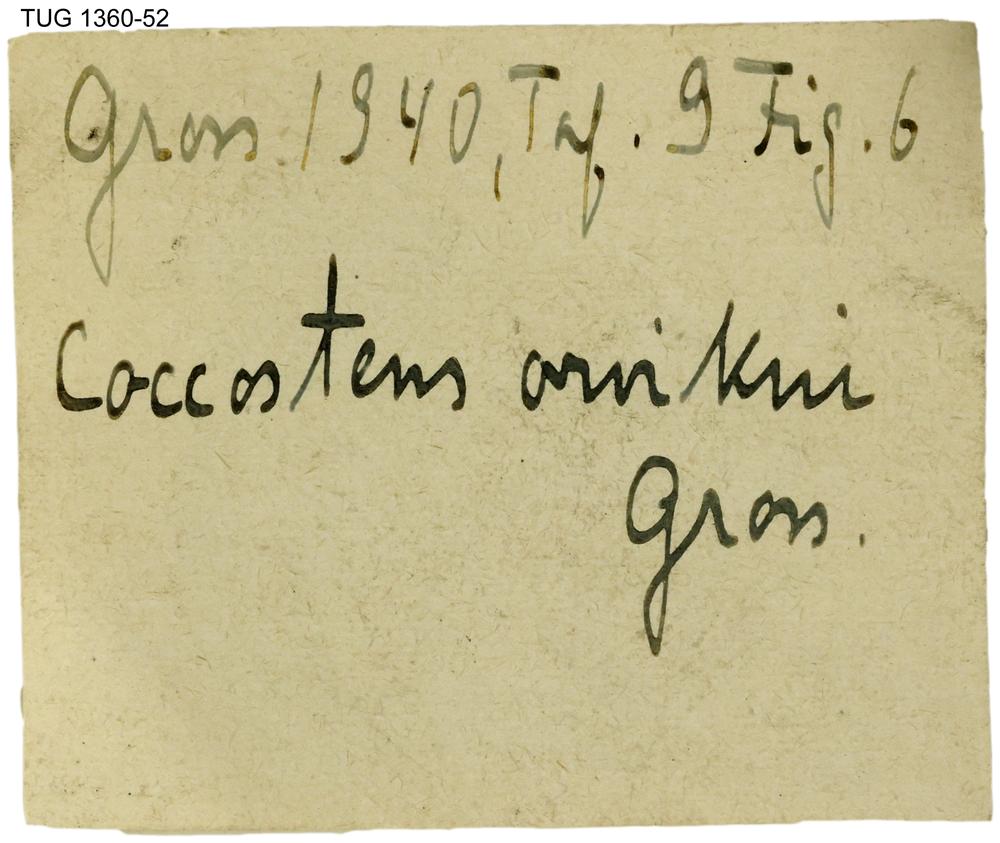 TUG 1360-52
Gross 1940, Taf. 9 Fig. 6
Coccosteus orvikui
Gross.